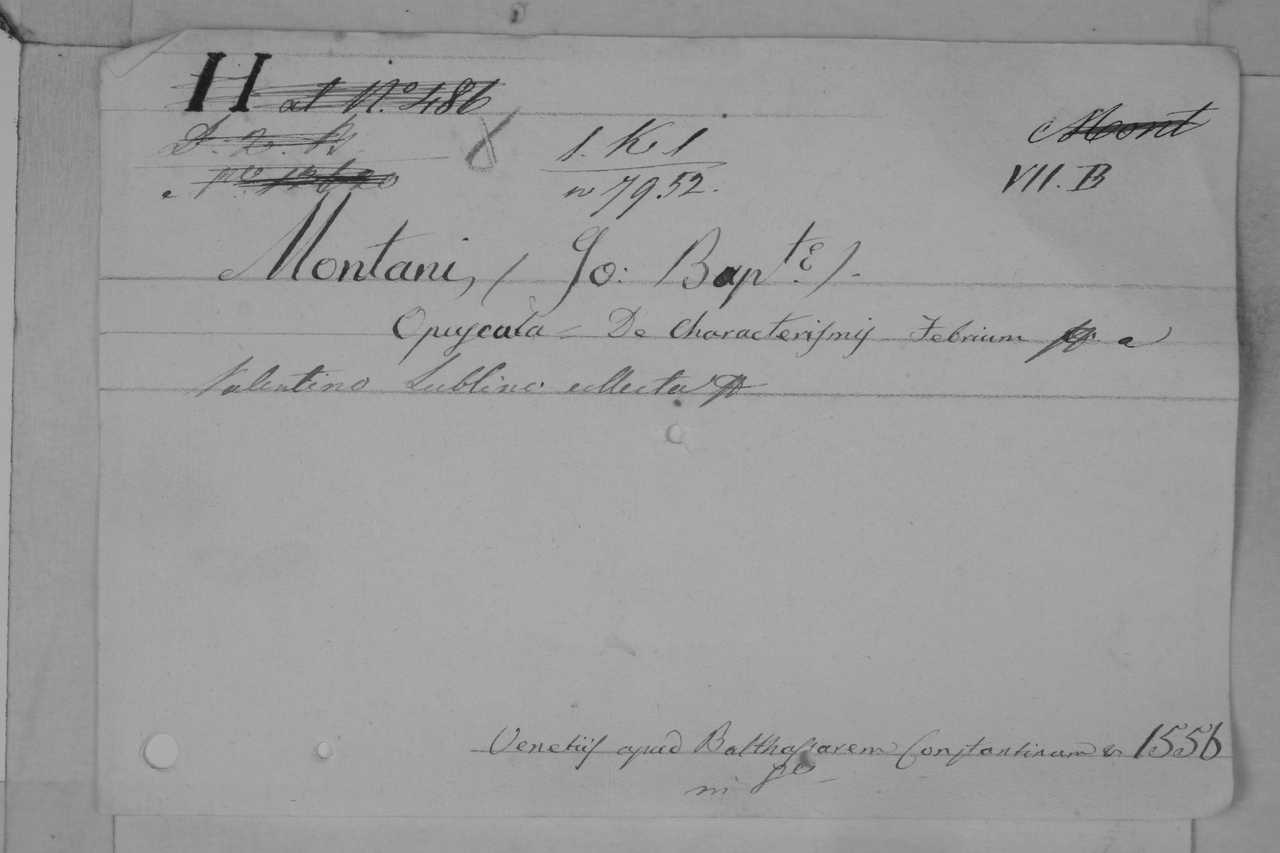 H at N.º 486
1. K. 1
n 7952.
Mont
VII. B
Montani, (Jo: Bap.te).
Opuscula - De Characterismis Febrium a
Valentino Lublino collecta
Venetiis apud Balthassarem Constantinum 1556
in 8º